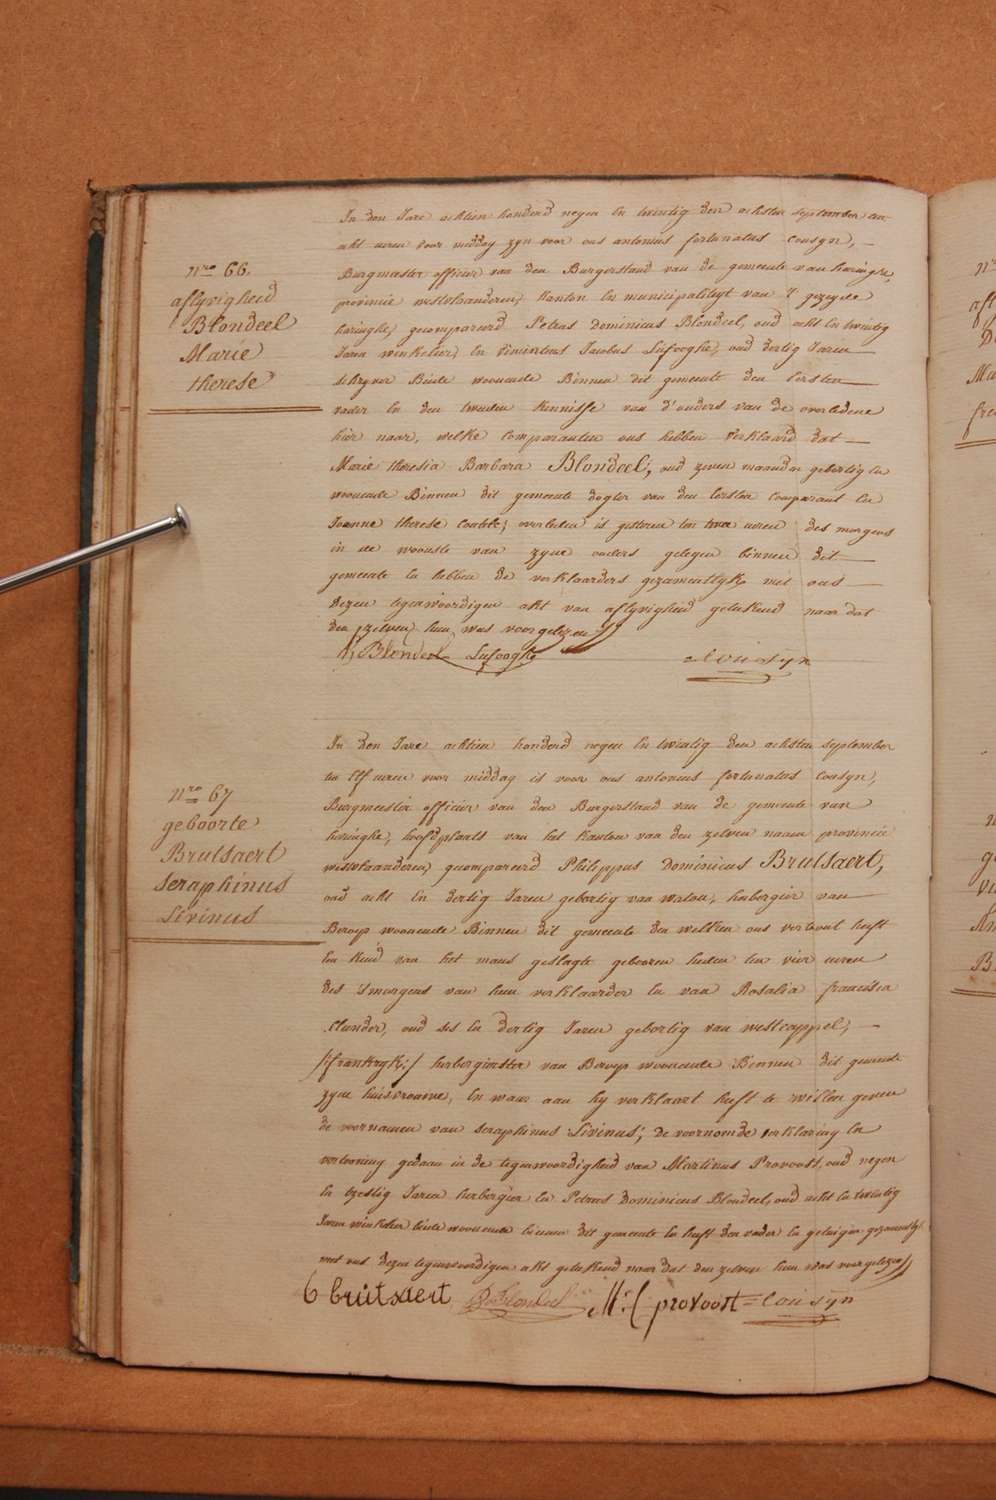 nro 66.
aflyvigheid
Blondeel
Marie
therese
In den Jare achtien honderd negen En twintig den achsten september ten
acht uren voor middag zyn voor ons antonius fortunatus Cousyn, —
Burgmeester officier van den Burgerstand van de gemeente van haringhe,
provincie westvlaanderen, kanton En municipaliteyt van 't gezeyde
haringhe, gecompareerd Petrus Dominicus Blondeel, oud acht En twintig
Jaren winkelier, En Vincentius Jacobus Lufooghe, oud dertig Jaren —
schryver Beide woonende Binnen dit gemeente den Eersten —
vader En den tweeden kennisse van d'ouders van de overledene
hier naar, welke comparanten ons hebben verklaard dat —
Marie theresia Barbara Blondeel, oud zeven maanden gebortig En
woonende Binnen dit gemeente dogter van den Eersten comparant En
Joanne therese overleden is gisteren ten twee uren des morgens
in de wooniste van zyne ouders gelegen binnen dit —
gemeente En hebben de verklaarders gezamentlyk met ons —
dezen tegenwoordigen akt van aflyvigheid geteekend naar dat
den zelven hun was voorgelezen
Blondeel Lufooghe Cousyn
nro 67
geboorte
Brutsaert
seraphinus
Livinus
In den Jare achtien honderd negen En twintig den achsten september
ten Elf uren voor middag is voor ons antonius fortunatus Cousyn,
Burgmeester officier van den Burgerstand van de gemeente van
haringhe, hoofdplaats van het kanton van den zelven naam provincie
westvlaanderen, gecompareerd Philippus Dominicus Brutsaert,
oud acht En dertig Jaren gebortig van watou, herbergier van
Beroep woonende Binnen dit gemeente den welken ons vertoont heeft
Een kind van het mans geslagte geboren heden ten vier uren
des 's morgens van hem verklaarder En van Rosalia francisca
oud ses En dertig Jaren gebortig van westcappel, —
/:frankryk:/ herbergierster van Beroep woonende Binnen dit gemeente
zyne huisvrouwe, En waar aan hy verklaart heeft te willen geven
de voornamen van seraphinus Livinus; de voornoemde verklaring En
vertooning gedaan in de tegenwoordigheid van Martinus Provoost, oud negen
En tzestig Jaren herbergier En Petrus Dominicus Blondeel, oud acht En twintig
Jaren winkelier beide woonende binnen dit gemeente En heeft den vader En getuigen gezamentlyk
met ons dezen tegenwoordigen akt geteekend naar dat den zelven hun was voorgelezen
brutsaert Blondeel provoost Cousyn